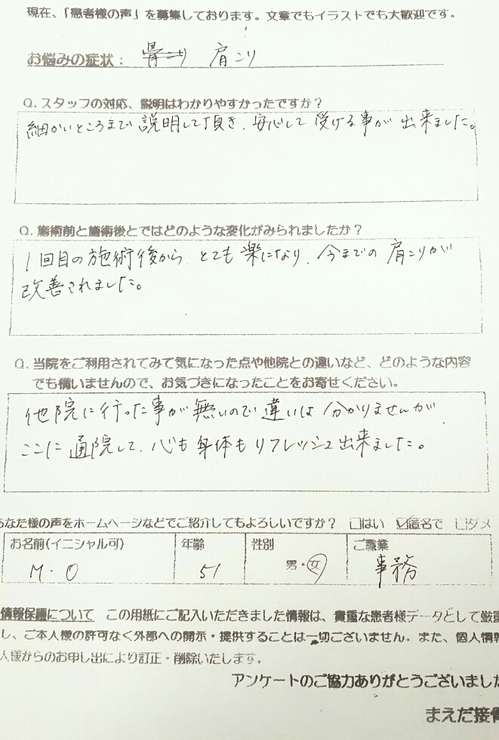 現在、「患者様の声」を募集しております。文章でもイラストでも大歓迎です。
お悩みの症状： 肩こり
Q. スタッフの対応、説明はわかりやすかったですか？
細かいところまで説明して頂き、安心して受ける事が出来ました。
Q. 施術前と施術後とではどのような変化がみられましたか？
1回目の施術後から、とても楽になり、今までの肩こりが
改善されました。
Q. 当院をご利用されてみて気になった点や他院との違いなど、どのような内容
でも構いませんので、お気づきになったことをお寄せください。
他院に行った事が無いので違いは分かりませんが
ここに通院して、心も身体もリフレッシュ出来ました。
あなた様の声をホームページなどでご紹介してもよろしいですか？ □はい ☑匿名で □ダメ
お名前(イニシャル可) 年齢 性別 ご職業
M・O 51 男・女 事務
情報保護について この用紙にご記入いただきました情報は、貴重な患者様データとして厳重
し、ご本人様の許可なく外部への開示・提供することは一切ございません。また、個人情報
人様からのお申し出により訂正・削除いたします。
アンケートのご協力ありがとうございました
まえだ接骨